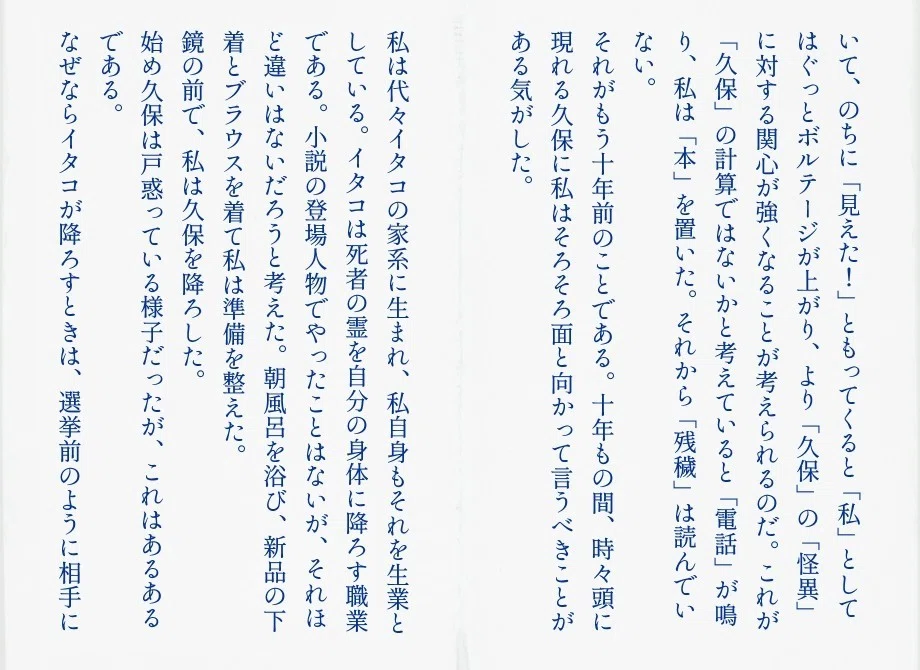 いて、のちに「見えた！」ともってくると「私」として
はぐっとボルテージが上がり、より「久保」の「怪異」
に対する関心が強くなることが考えられるのだ。これが
「久保」の計算ではないかと考えていると「電話」が鳴
り、私は「本」を置いた。それから「残穢」は読んでい
ない。
それがもう十年前のことである。十年もの間、時々頭に
現れる久保に私はそろそろ面と向かって言うべきことが
ある気がした。
私は代々イタコの家系に生まれ、私自身もそれを生業と
している。イタコは死者の霊を自分の身体に降ろす職業
である。小説の登場人物でやったことはないが、それほ
ど違いはないだろうと考えた。朝風呂を浴び、新品の下
着とブラウスを着て私は準備を整えた。
鏡の前で、私は久保を降ろした。
始め久保は戸惑っている様子だったが、これはあるある
である。
なぜならイタコが降ろすときは、選挙前のように相手に